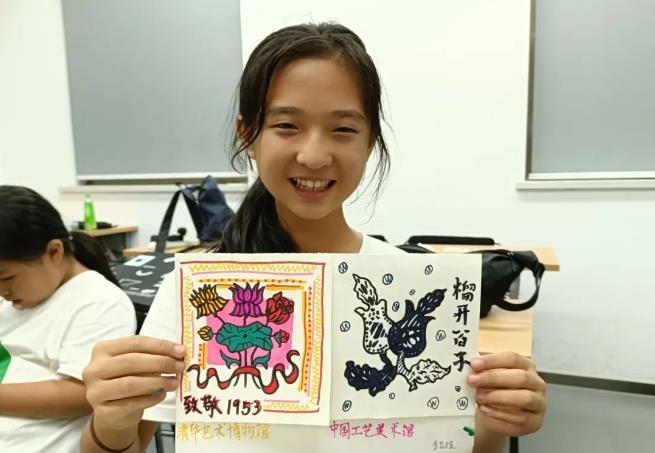 致敬1953
清华艺术博物馆
榴开百子
中国工艺美术馆